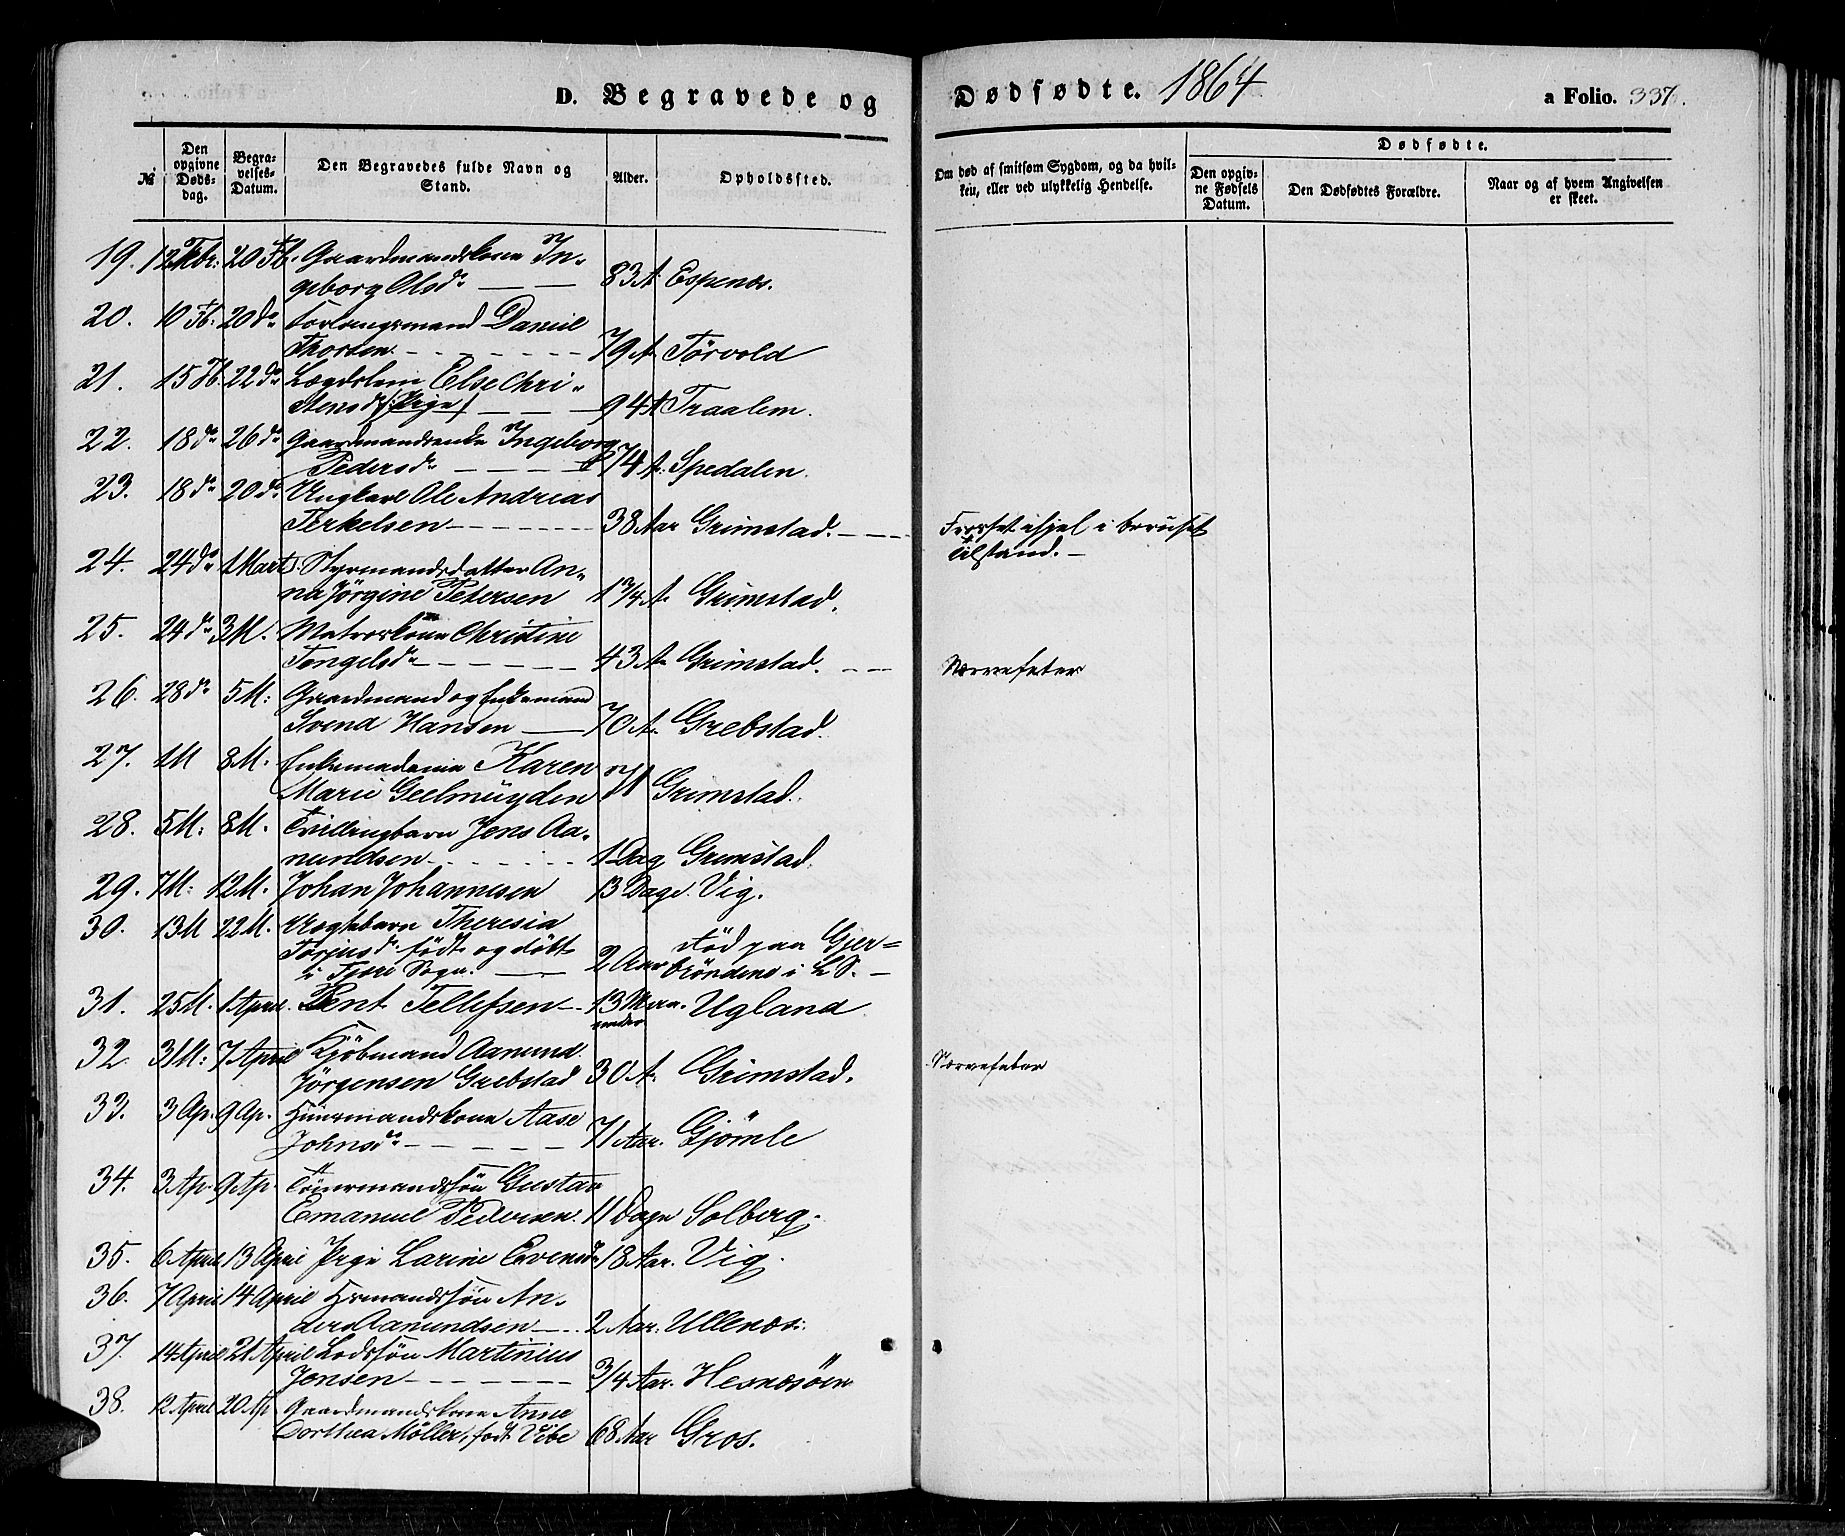 D. Begravede og Dødfødte. 1864 a Folio. 337.
№
Den opgivne Dødsdag.
Begravelses-Datum.
Den Begravedes fulde Navn og Stand.
Alder.
Opholdssted.
Om død af smitsom Sygdom, og da hvilken, eller ved ulykkelig Hendelse.
Dødfødte.
Den opgivne Fødsels Datum.
Den Dødfødtes Forældre.
Naar og af hvem Angivelsen er skeet.
19. 12 Febr: 20 Fb. Gaardmandskone In-
geborg Olsd. 83 A. Espenæs.
20. 10 Fb: 20 do Forlaugsmand Daniel
Thorsen 79 A. Törvold
21. 15 Fb. 22 do Lægdslem Else Chri-
stensd (: Pige) 94 A Traalem.
22. 18 do 26 do Gaardmandsenke Ingeborg
Pedersd. 74 A. Spedalen.
23. 18 do 20 do Ungkarl Ole Andreas
Terkelsen 38 Aar Grimstad. Frosset ihjel i beruset
tilstand.
24. 24 do 1 Marts. Styrmandsdatter An-
na Jörgine Petersen 1 3/4 A. Grimstad.
25. 24 do 3 M. Matroskone Christine
Tengelsd. 43 A. Grimstad. Nervefeber
26. 28 do 5 M: Gaardmand og Enkemand
Svend Hansen 70 A. Grebstad.
27. 1 M 8 M. Enkemadame Karen
Marie Geelmüyden 71 Grimstad.
28. 5 M: 8 M. Tvillingbarn Jens Aa-
nundsen 1 Dag Grimstad.
29. 7 M: 12 M. Johan Johannesen 13 Dage. Vig.
30. 13 M 22 M. Uægtebarn Theresia
Torjusd. födt og döbt
i Fjære Sogn. 2 Aar död paa Gjer-
bröndene i L S.
31. 25 M. 1 April. Bent Tellefsen 13 Maa-
neder Ugland
32. 31 M: 7 April Kjöbmand Aanund
Jörgensen Grebstad 30 A. Grimstad. Nervefeber
33. 3 Ap. 9 Ap. Huusmandskone Aase
Johnsd. 71 Aar. Gjömle
34. 3 Ap. 9 Ap. Tömmermandssön Gustav
Emanuel Pedersen. 11 Dage Solberg.
35. 6 April 13 April Pige Larine Evensd. 18 Aar. Vig.
36. 7 April 14 April Hsmandssön An-
ders Aanundsen 2 Aar. Ullenæs.
37. 14 April 21 April Lodssön Martinius
Jensen 3/4 Aar. Hesnesöen
38. 12 April 20 Ap Gaardmandskone Anne
Dorthea Möller, födt Vibe 68 Aar Gros.